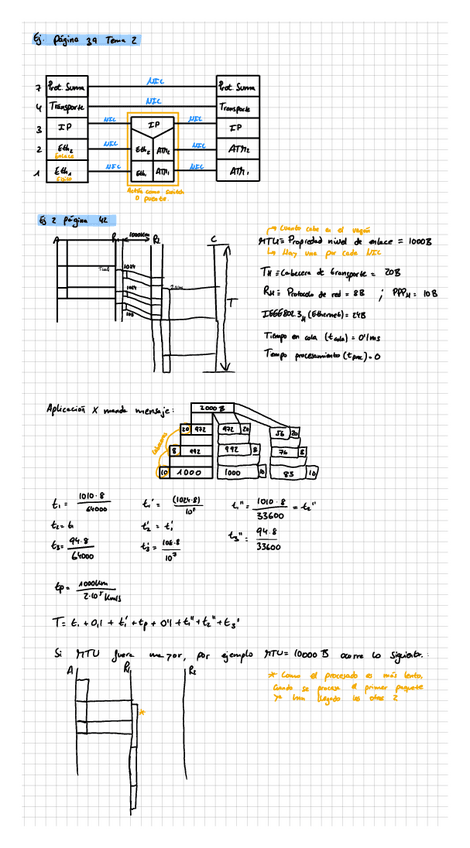 Ej. Página 39 Tema 2
7 Prot Summ NIC Prot Summ
4 Transporte NIC Transporte
3 IP NIC IP NIC IP
2 Eth2 NIC Eth2 ATM2 NIC ATM2
Enlace
1 Eth1 NIC Eth1 ATM1 NIC ATM1
Actúa como switch
o puente
Ej 2 Página 42
A R1 1000Km R2 C
1024
1024
108
T
Cuanto cabe en el vagón
MTU ≡ Propiedad nivel de enlace = 1000B
Hay una por cada NIC
TH ≡ Cabecera de transporte = 20B
RH ≡ Protocolo de red = 8B ; PPPH = 10B
IEEE802.3H (Ethernet) = 24B
Tiempo en cola (tcola) = 0'1ms
Tiempo procesamiento (tproc) = 0
Aplicación X manda mensaje:
2000 B
20 972 972 20 56 20
8 992 992 8 76 8
10 1000 1000 10 85 10
Cabeceras
t1 = 1010·8 / 64000 t1' = (1024·8) / 10⁷ t1'' = 1010·8 / 33600 = t2''
t2 = t1 t2' = t1'
t3 = 94·8 / 64000 t3' = 108·8 / 10⁷ t3'' = 94·8 / 33600
tp = 1000Km / 2·10⁵ Km/s
T = t1 + 0,1 + t1' + tp + 0'1 + t1'' + t2'' + t3''
Si MTU fuera mayor, por ejemplo MTU = 10000 B ocurre lo siguiente:
A R1 R2
*
* Como el procesado es más lento,
cuando se procesa el primer paquete
ya han llegado los otros 2